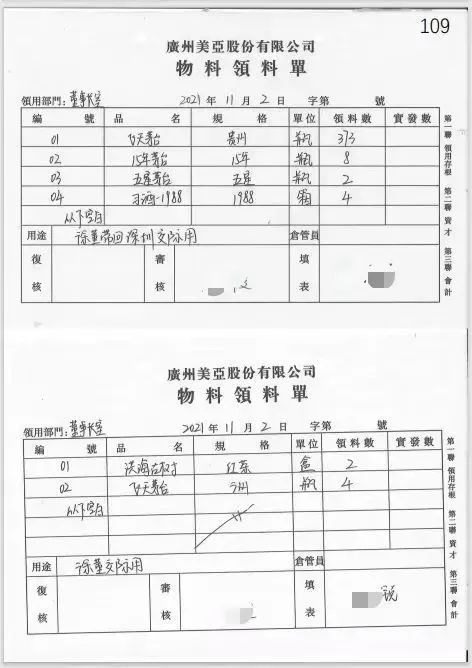 109
廣州美亞股份有限公司
物料領料單
領用部門:董事长室 2021年11月2日 字第 號
編號 品名 規格 單位 領料數 實發數
01 飞天茅台 贵州 瓶 373
02 15年茅台 15年 瓶 8
03 五星茅台 五星 瓶 2
04 习酒-1988 1988 箱 4
以下空白
用途 徐董带回深圳交际用 倉管員
復核 審核 填表
第一聯 領用存根 第二聯 資才 第三聯 會計
廣州美亞股份有限公司
物料領料單
領用部門:董事长室 2021年11月2日 字第 號
編號 品名 規格 單位 領料數 實發數
01 古树 红茶 盒 2
02 飞天茅台 瓶 4
以下空白
用途 徐董交际用 倉管員
復核 審核 填表 锐
第一聯 領用存根 第二聯 資才 第三聯 會計